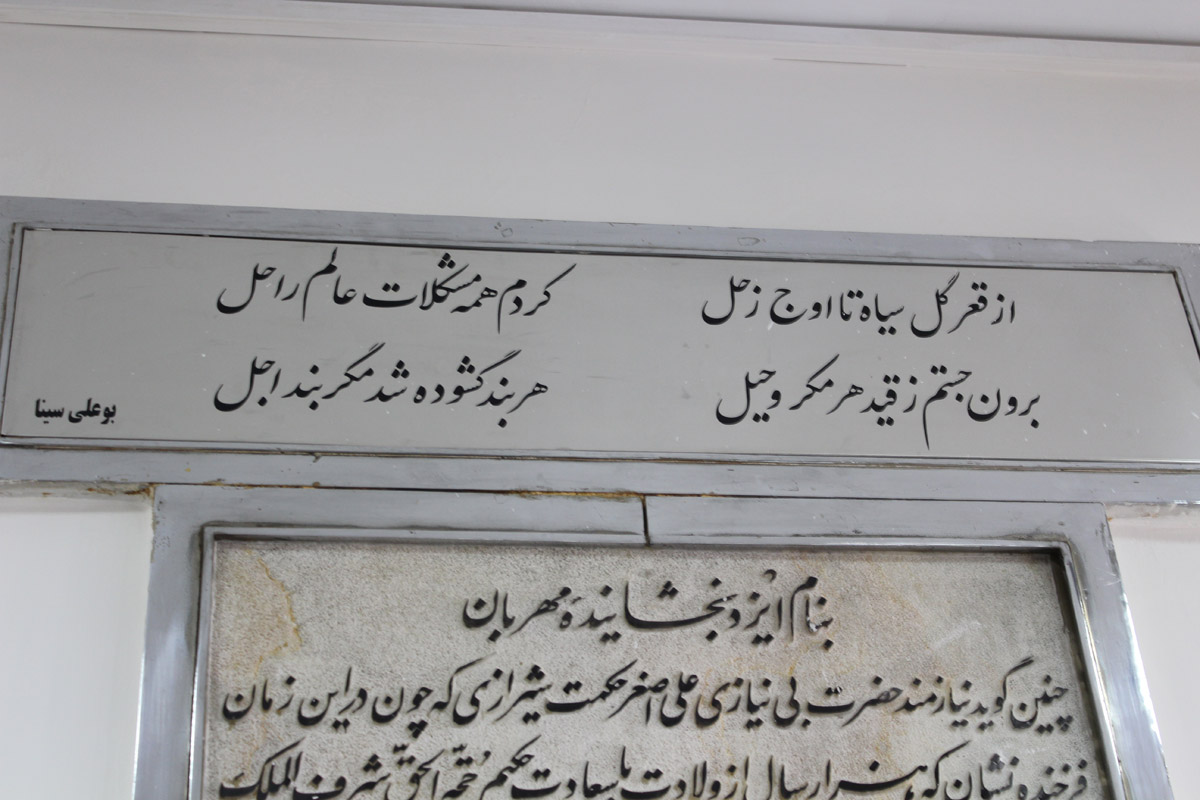 از قعر گل سیاه تا اوج زحل کردم همه مشکلات عالم را حل
برون جستم ز قید هر مکر و حیل هر بند گشوده شد مگر بند اجل
بوعلی سینا
بنام ایزد بخشایندهٔ مهربان
چنین گوید نیازمند حضرت بی نیازی علی اصغر حکمت شیرازی که چون در این زمان
فرخنده نشان که هزار سال از ولادت با سعادت حکیم حُجّة الحقّ شرف الملک